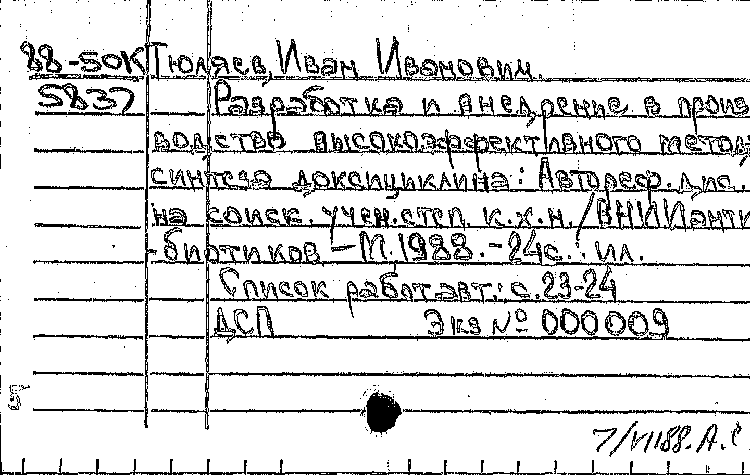 88-50К Тюляев, Иван Иванович.
5837 Разработка и внедрение в произ
водство высокоэффективного метод
синтеза доксициклина: Автореф. дис.
на соиск. учен. степ. к.х.н. /ВНИИанти
-биотиков. – М. 1988. - 24с.: ил.
Список работ авт.: с. 23-24
ДСП Экз № 000009
7/VII88. А.С